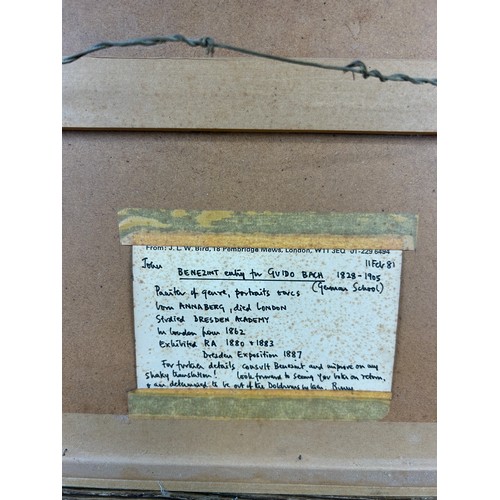 From: J. L. W. Bird, 18 Pembridge Mews, London, W11 3EQ 01-229 6494
John 11 Feb 83
BENEZINT entry for GUIDO BACH 1828-1905
Painter of genre, portraits (German School)
born ANNABERG, died LONDON
Studied DRESDEN ACADEMY
In London from 1862
Exhibited RA 1880 + 1883
Dresden Exposition 1887
For further details consult Benezint and improve on my
shaky translation! look forward to seeing you both on return,
+ am determined to be out of the Doldrums